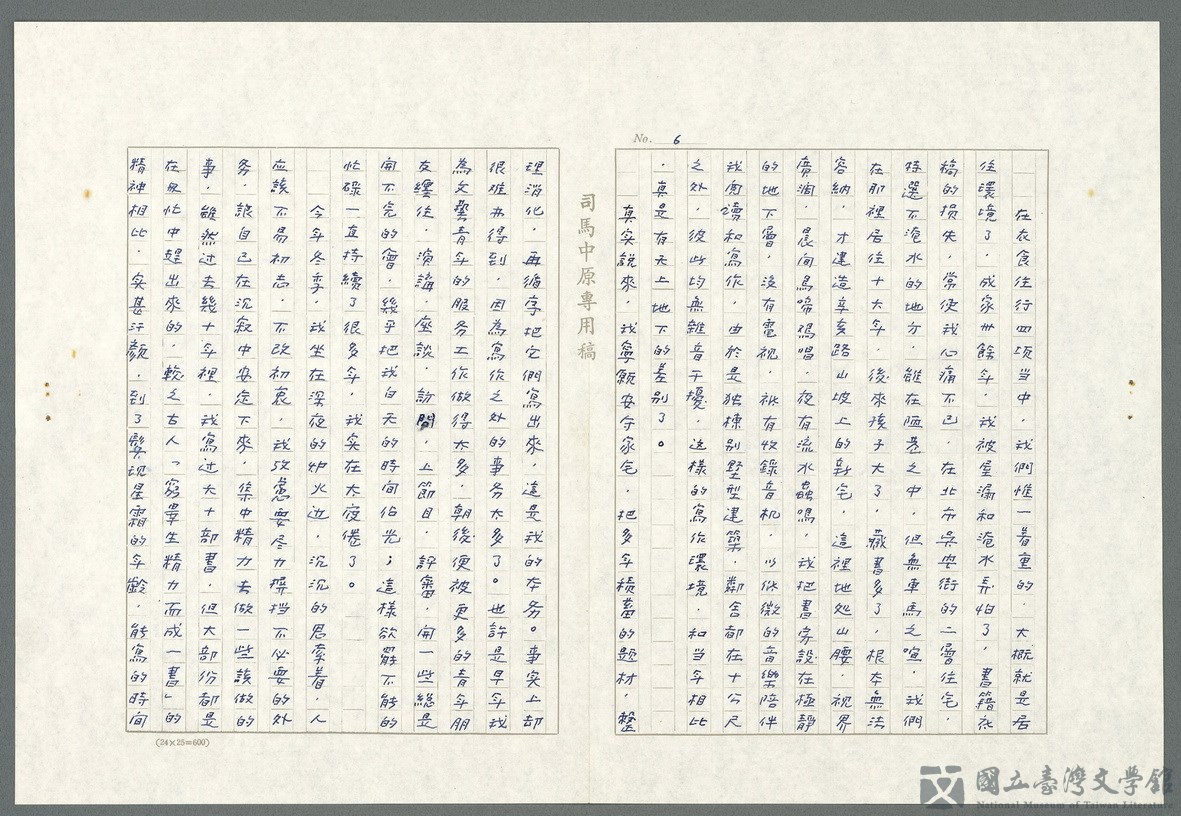 No. 6
在衣食住行四項当中，我們惟一着重的，大概就是居
住環境了，成家卅餘年，我被屋漏和淹水弄怕了，書籍稿
稿的損失，常使我心痛不已，在北市吳興街的二層住宅，
特選不淹水的地方，雖在陋巷之中，但無車馬之喧，我們
在那裡居住十大年，後來孩子大了，藏書多了，根本無法
容納，才建造辛亥路山坡上的新宅，這裡地処山腰，視界
廣濶，晨间鳥啼鸡唱，夜有流水蟲鳴，我把書房設在極靜
的地下層，沒有電視，祇有收錄音机，以低微的音樂陪伴
我閱讀和寫作，由於是独棟別墅型建築，鄰舍都在十公尺
之外，彼此均無雜音干擾，这樣的寫作環境，和当年相比
，真是有天上地下的差別了。
真实説來，我寧願安守家宅，把多年積蓄的題材，整
司馬中原專用稿
理消化，再循序把它們寫出來，這是我的本务。事实上却
很难办得到，因為寫作之外的事务太多了。也許是早年我
為文藝青年的服务工作做得太多，朝後便被更多的青年朋
友纏住，演講，座談，訪問，上節目，評審，開一些總是
開不完的會，幾乎把我白天的時间佔光；這樣欲罷不能的
忙碌一直持續了很多年，我实在太疲倦了。
今年冬季，我坐在深夜的炉火边，沉沉的思索着，人
应該不易初志，不改初衷，我攷慮要尽力摒挡不必要的外
务，讓自己在沉寂中安定下來，集中精力去做一些該做的
事，雖然过去幾十年裡，我寫过大十部書，但大部份都是
在匆忙中趕出來的，較之古人「窮畢生精力而成一書」的
精神相比，实甚汗顏，到了鬓现星霜的年齡，能寫的時间
(24×25=600)
國立臺灣文學館
National Museum of Taiwan Literature